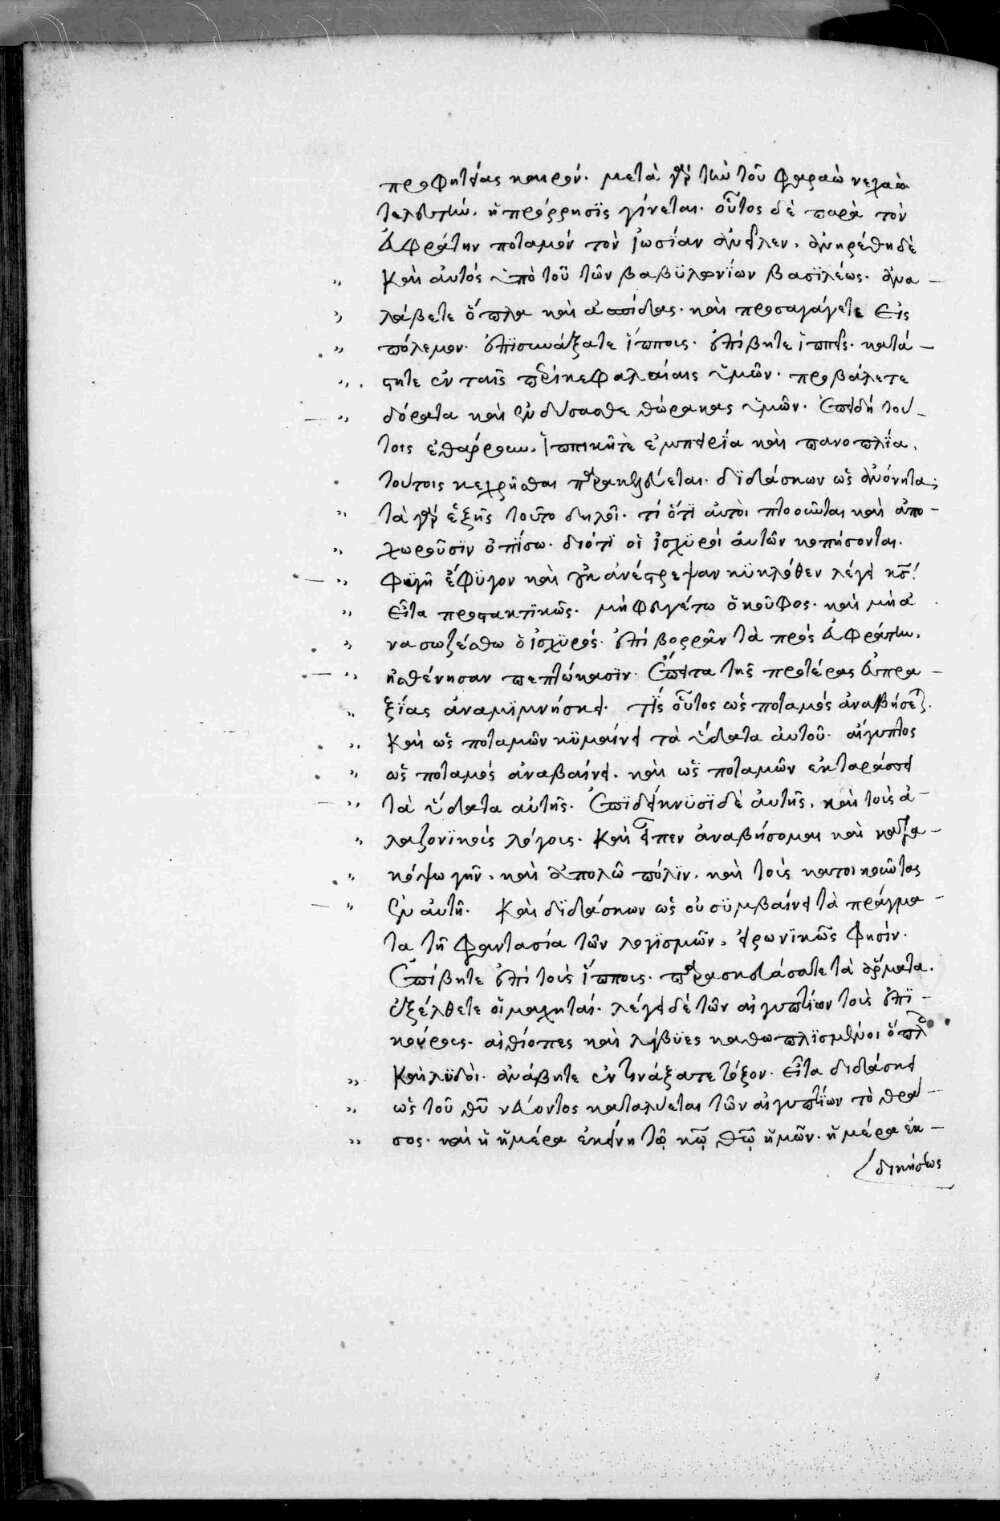 προφητείας καιρόν. μετὰ γὰρ τὴν τοῦ φαραὼ νεχαὼ
τελευτὴν. ἡ πρόρρησϊς γίνεται. οὗτος δὲ παρὰ τὸν
ἐυφράτην ποταμὸν τὸν ἰωσίαν ἀνεῖλεν. ἀνῃρέθη δὲ
καὶ αὐτὸς ὑπὸ τοῦ τῶν βαβϋλωνίων βασϊλέως. ἀνα-
λάβετε ὅπλα καὶ ἀσπίδας. καὶ προσαγάγετε εἰς
πόλεμον. ἐπϊσυνάξατε ἵππους. ἐπίβητε ἱππεῖς. κατά-
στητε ἐν ταῖς περϊκεφαλαίαις ὑμῶν. προβάλετε
δόρατα καὶ ἐνδύσασθε θώρακας ὑμῶν. ἐπειδὴ τού-
τοις ἐθάρρουν. ἱππικῆ τὲ ἐμπειρία καὶ πανοπλία.
τούτοις κεχρῆσθαι παρακελεύεται. δϊδάσκων ὡς ἀνόνητα;
τὰ γὰρ ἑξῆς τοῦτο δηλοῖ. τί ὅτϊ αὐτοὶ πτοοῦνται καὶ ἀπο-
χωροῦσϊν ὀπίσω. διότϊ οἱ ἰσχϋροὶ αὐτῶν κοπήσονται.
φυγῆ ἔφϋγον καὶ οὐκ ἀνέστρεψαν κϋκλόθεν λέγει κς.
εἶτα προστακτϊκῶς. μὴ φευγέτω ὁ κοῦφος. καὶ μὴ ἀ
νασωζέσθω ὁ ἰσχϋρός. ἐπὶ βορρᾶν τὰ πρὸς ἐυφράτην.
ἠσθένησαν πεπτώκασϊν. ἔπειτα τῆς προτέρας ἐυπρα-
ξίας ἀναμϊμνήσκει. τίς οὗτος ὡς ποταμὸς ἀναβήσεται.
καὶ ὡς ποταμῶν κϋμαίνει τὰ ὕδατα αὐτοῦ. αἴγυπτος
ὡς ποταμὸς ἀναβαίνει. καὶ ὡς ποταμῶν ἐκταράσσει
τὰ ὕδατα αὐτῆς. ἐπϊδείκνυσϊ δὲ αὐτῆς, καὶ τοὺς ἀ-
λαζονϊκοὺς λόγους. καὶ εἶπεν ἀναβήσομαι καὶ κατα-
κόψω γῆν. καὶ ἀπολῶ πόλϊν. καὶ τοὺς κατοικοῦντας
ἐν αὐτῆ. καὶ δϊδάσκων ὡς οὐ σϋμβαίνει τὰ πράγμα-
τα τῆ φαντασία τῶν λογϊσμῶν, εἰρωνϊκῶς φησϊν.
ἐπίβητε ἐπὶ τοὺς ἵππους. παρασκευάσατε τὰ ἅρματα.
ἐξέλθετε οἱ μαχηταί. λέγει δὲ τῶν αἰγυπτίων τοὺς ἐπϊ-
κούρους. αἰθίοπες καὶ λίβϋες καθωπλϊσμένοι ὅπλοις
καὶ λϋδοὶ. ἀνάβητε ἐντϊνάξατε τόξον. εἶτα διδάσκει
ὡς τοῦ θῦ νεύοντος καταλύεται τῶν αἰγυπτίων τὸ θρά-
σος. καὶ ἡ ἡμέρα ἐκείνη τῷ κῷ θῷ ἡμῶν. ἡμέρα ἐκ-
δικήσεως